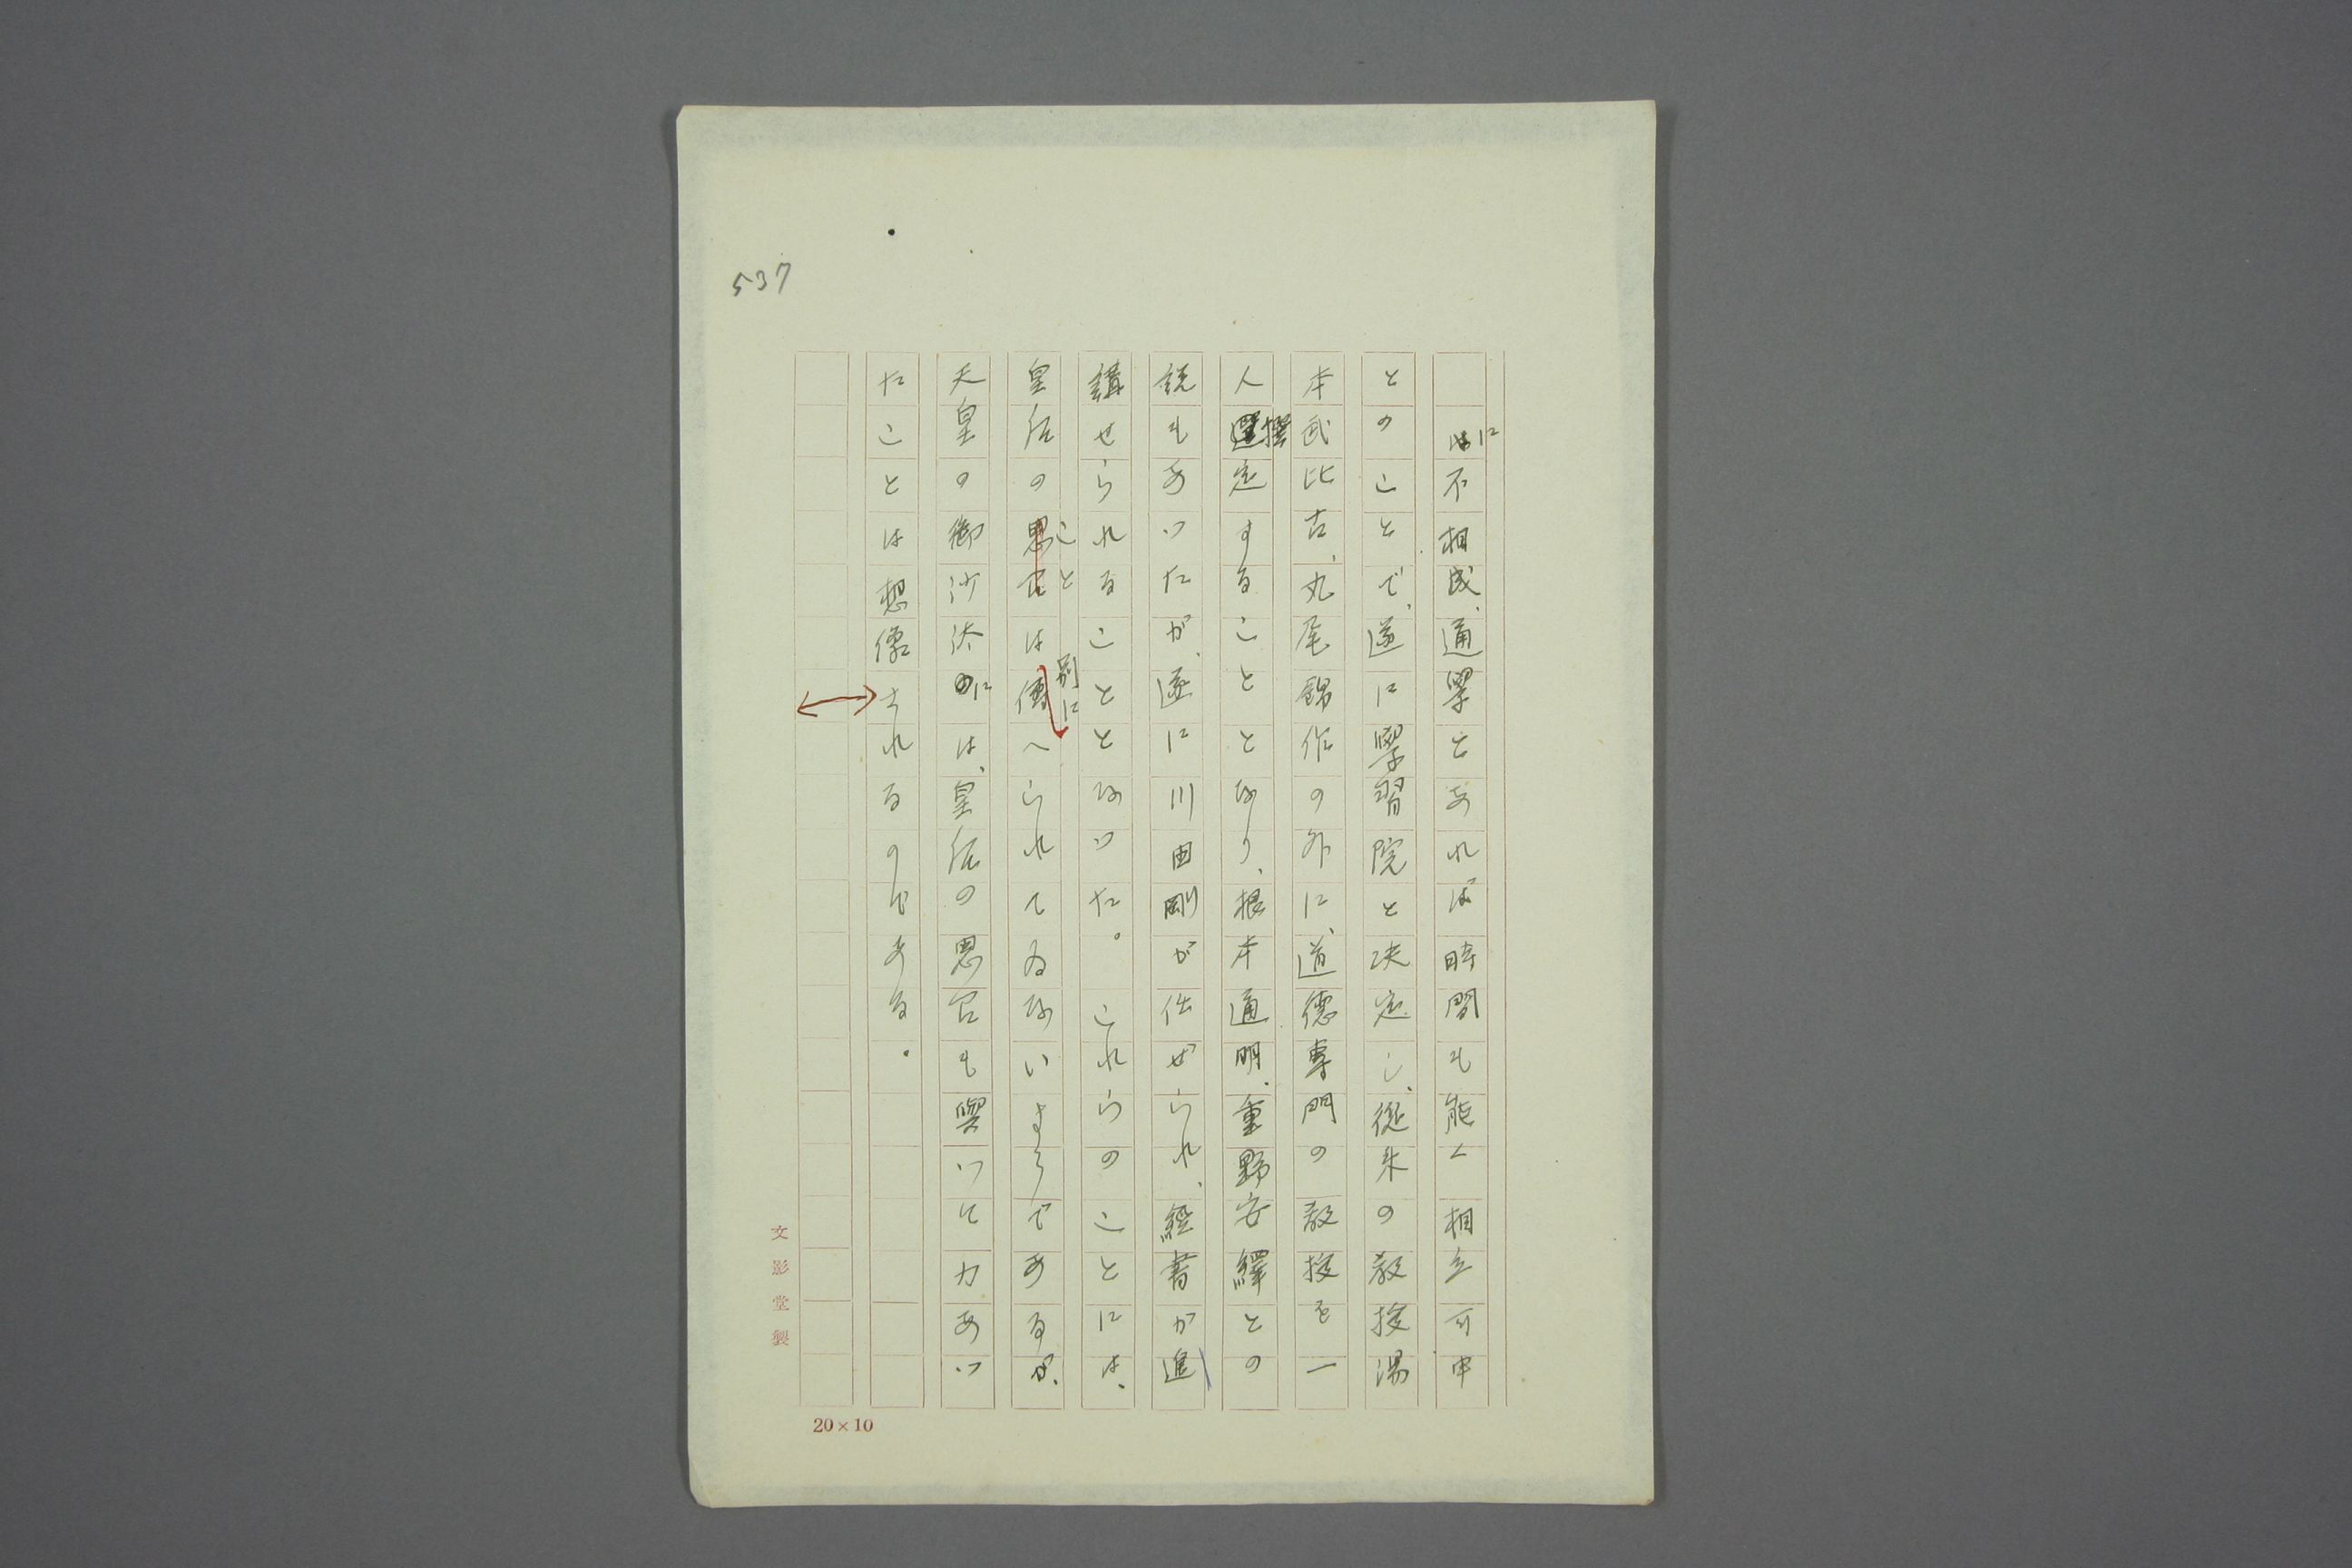 537
に不相成、通學とあれば時間も能く相立可申
とのことで、遂に學習院と決定し、從来の教授湯
本武比古、丸尾錦作の外に、道德専門の教授を一
人撰定することとなり、根本通明、重野安繹との
説もあつたが、遂に川田剛が任ぜられ、經書が進
講せられることとなつた。これらのことには、
皇后のことは別に傳へられてゐないようであるが、
天皇の御沙汰には、皇后の思召も與つて力あつ
たことは想像されるのである。
文影堂製
20×10